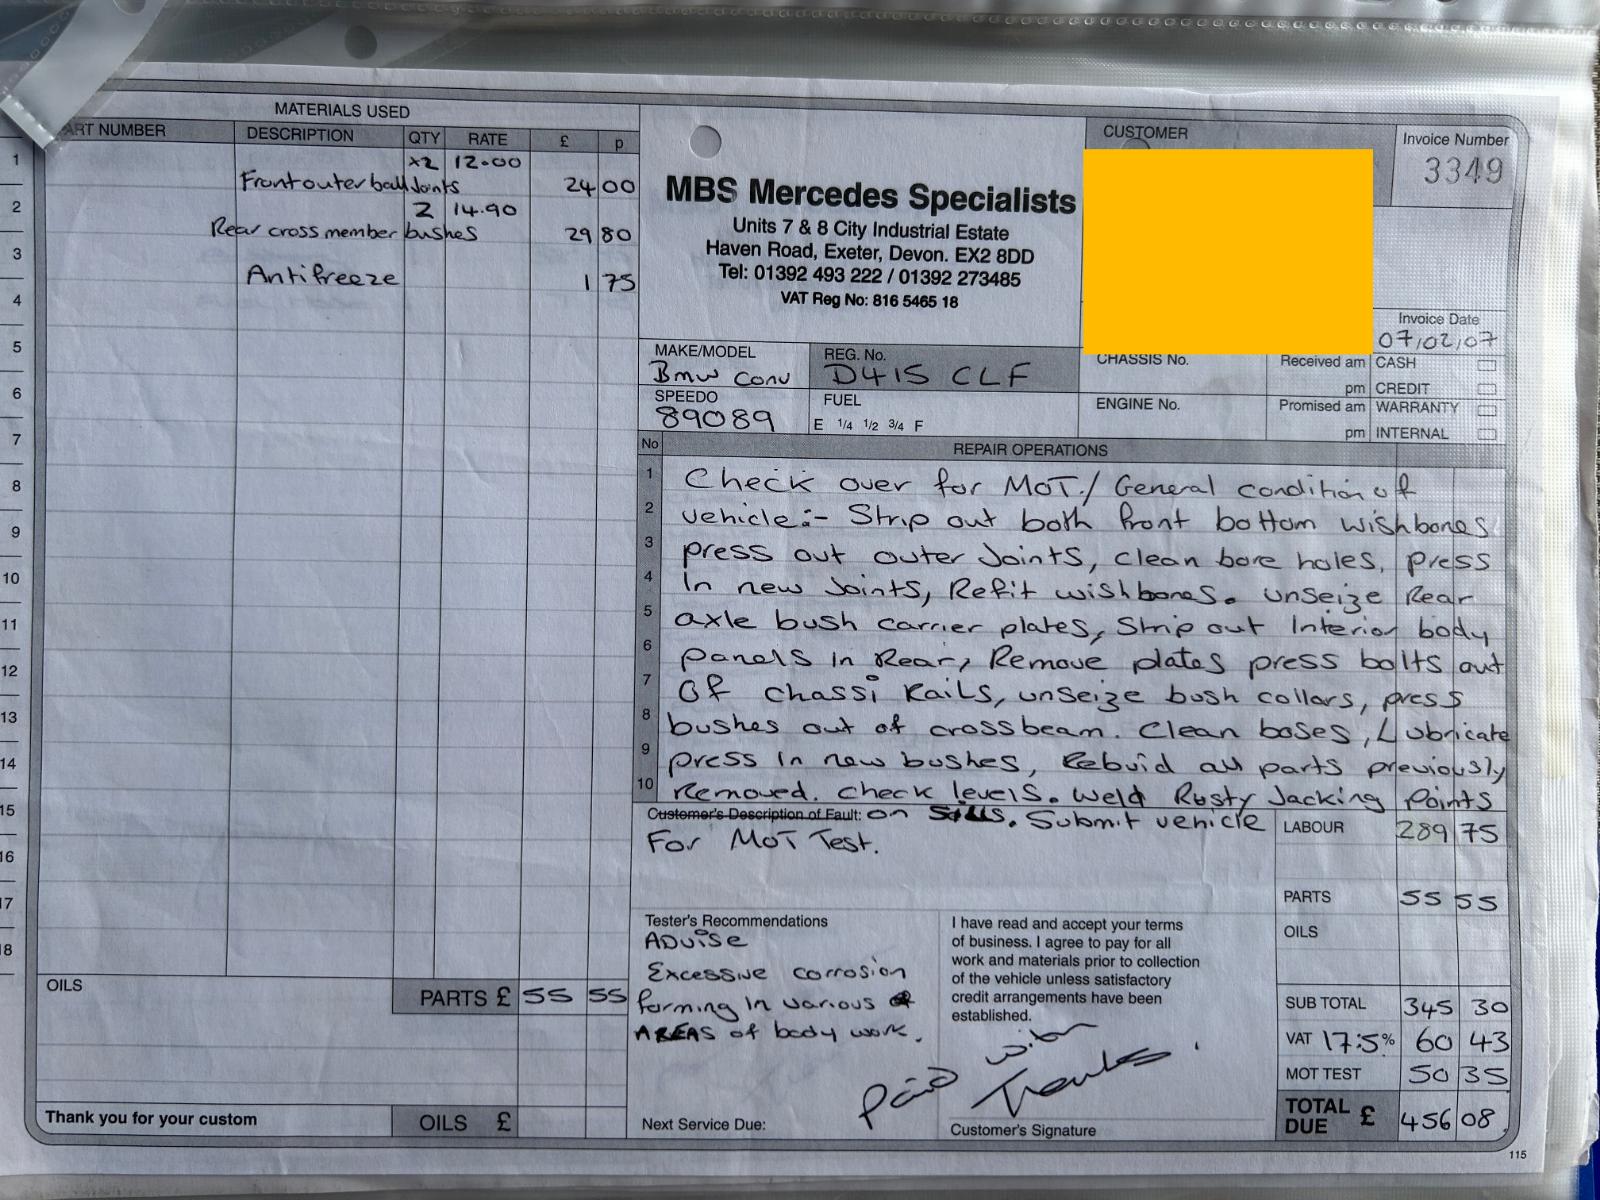 MATERIALS USED
ART NUMBER DESCRIPTION QTY RATE £ p
1 x2 12.00
Front outer ball Joints 24 00
2 2 14.90
Rear cross member bushes 29 80
3
Antifreeze 1 75
4
5
6
7
8
9
10
11
12
13
14
15
16
17
18
OILS
PARTS £ 55 55
Thank you for your custom
OILS £
MBS Mercedes Specialists
Units 7 & 8 City Industrial Estate
Haven Road, Exeter, Devon. EX2 8DD
Tel: 01392 493 222 / 01392 273485
VAT Reg No: 816 5465 18
CUSTOMER
Invoice Number
3349
Invoice Date
07/02/07
MAKE/MODEL
Bmw Conv
REG. No.
D415 CLF
CHASSIS No.
Received am
pm
CASH
CREDIT
SPEEDO
89089
FUEL
E 1/4 1/2 3/4 F
ENGINE No.
Promised am
pm
WARRANTY
INTERNAL
No REPAIR OPERATIONS
1 Check over for MoT./ General condition of
2 vehicle:- Strip out both front bottom wishbones
3 press out outer Joints, clean bore holes, press
4 In new Joints, Refit wishbones. unseize Rear
5 axle bush carrier plates, Strip out Interior body
6 panels In Rear, Remove plates press bolts out
7 Of chassi Rails, unseize bush collars, press
8 bushes out of crossbeam. Clean boses, Lubricate
9 press In new bushes, Rebuid all parts previously
10 Removed. check levels. Weld Rusty Jacking Points
Customer's Description of Fault: on Sills. Submit vehicle
For MoT Test.
LABOUR 289 75
PARTS 55 55
OILS
SUB TOTAL 345 30
VAT 17.5% 60 43
MOT TEST 50 35
TOTAL DUE £ 456 08
Tester's Recommendations
ADvise
Excessive corrosion
forming In various
AREAS of body work.
Next Service Due:
I have read and accept your terms
of business. I agree to pay for all
work and materials prior to collection
of the vehicle unless satisfactory
credit arrangements have been
established.
Paid with
Thanks.
Customer's Signature
115